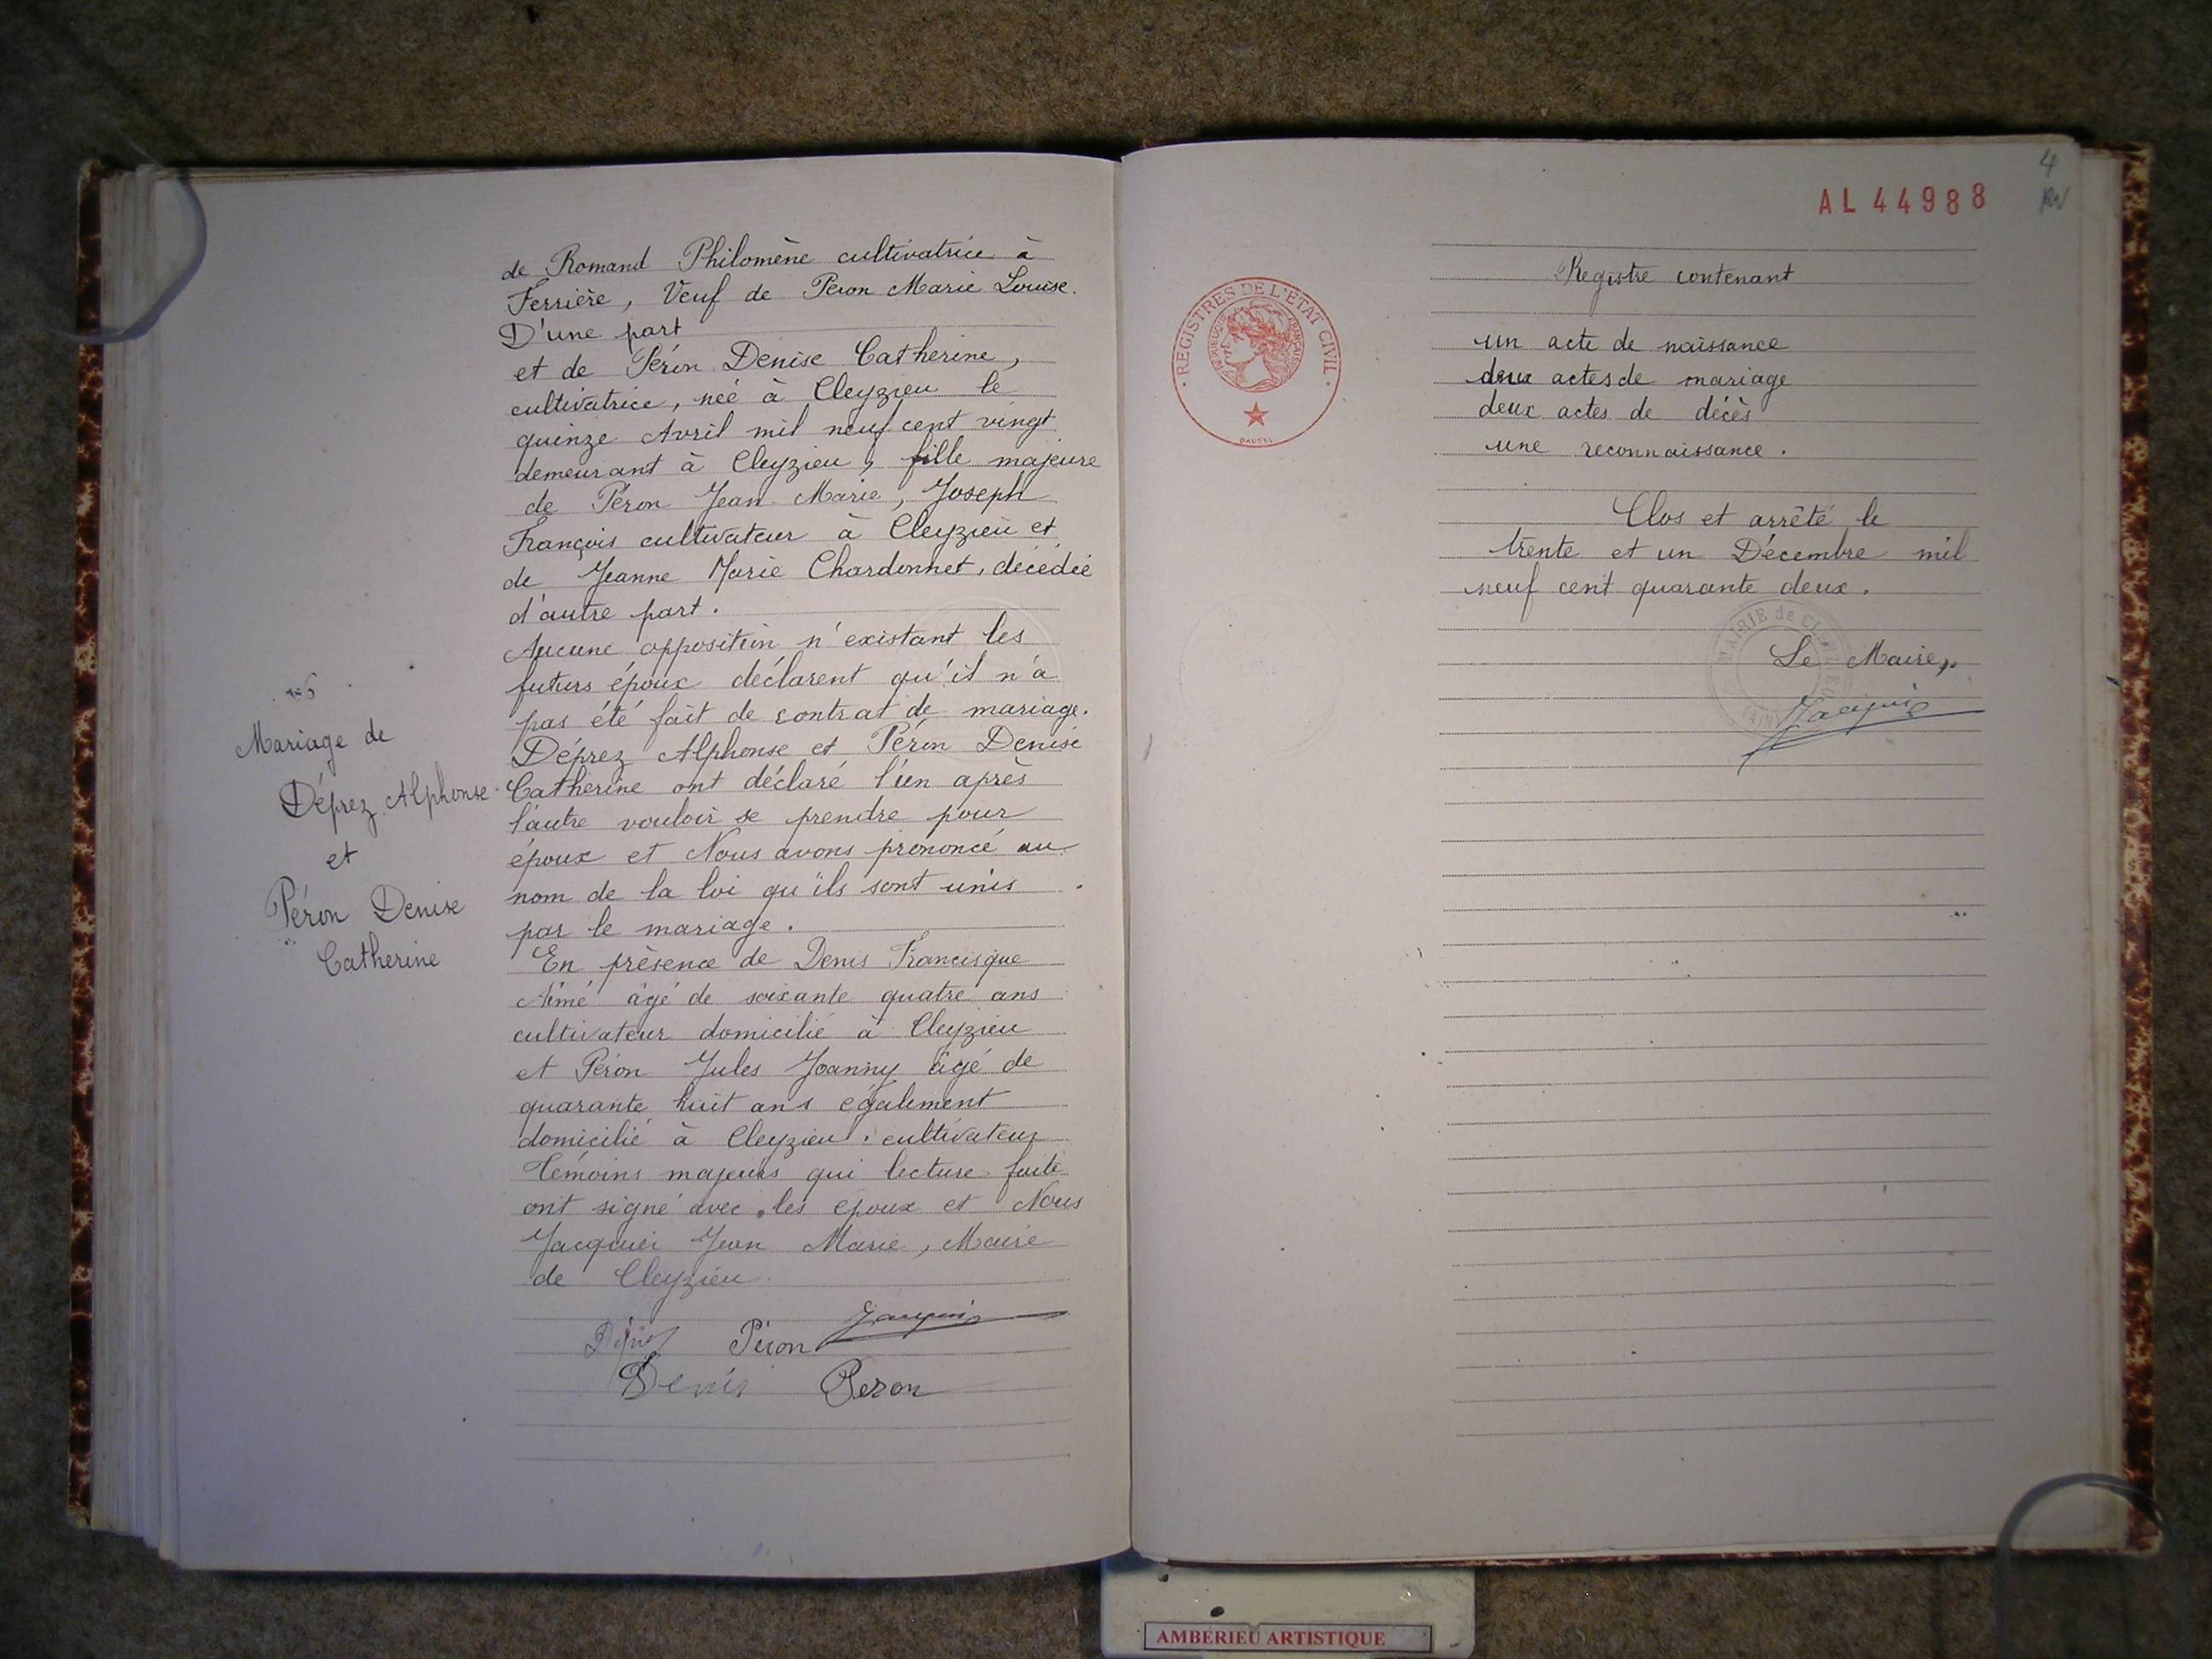 de Romand Philomène cultivatrice à
Ferrière, Veuf de Péron Marie Louise.
D'une part
et de Péron Denise Catherine,
cultivatrice, née à Cleyzieu le
quinze Avril mil neuf cent vingt
demeurant à Cleyzieu, fille majeure
de Péron Jean Marie, Joseph
François cultivateur à Cleyzieu et
de Jeanne Marie Chardonnet, décédée
d'autre part.
Aucune opposition n'existant les
futurs époux déclarent qu'il n'a
pas été fait de contrat de mariage.
Déprez Alphonse et Péron Denise
Catherine ont déclaré l'un après
l'autre vouloir se prendre pour
époux et Nous avons prononcé au
nom de la loi qu'ils sont unis
par le mariage.
En présence de Denis Francisque
Aimé âgé de soixante quatre ans
cultivateur domicilié à Cleyzieu
et Péron Jules Joanny âgé de
quarante huit ans également
domicilié à Cleyzieu. cultivateur
Témoins majeurs qui lecture faite
ont signé avec les époux et Nous
Jacquier Jean Marie, Maire
de Cleyzieu
Péron
Denis Peron
Mariage de
Déprez Alphonse
et
Péron Denise
Catherine
4
AL 44988
REGISTRES DE L'ETAT CIVIL
REPUBLIQUE FRANÇAISE
Registre contenant
un acte de naissance
deux actes de mariage
deux actes de décès
une reconnaissance.
Clos et arrêté le
trente et un Décembre mil
neuf cent quarante deux.
MAIRIE de
Le Maire,
AMBERIEU ARTISTIQUE